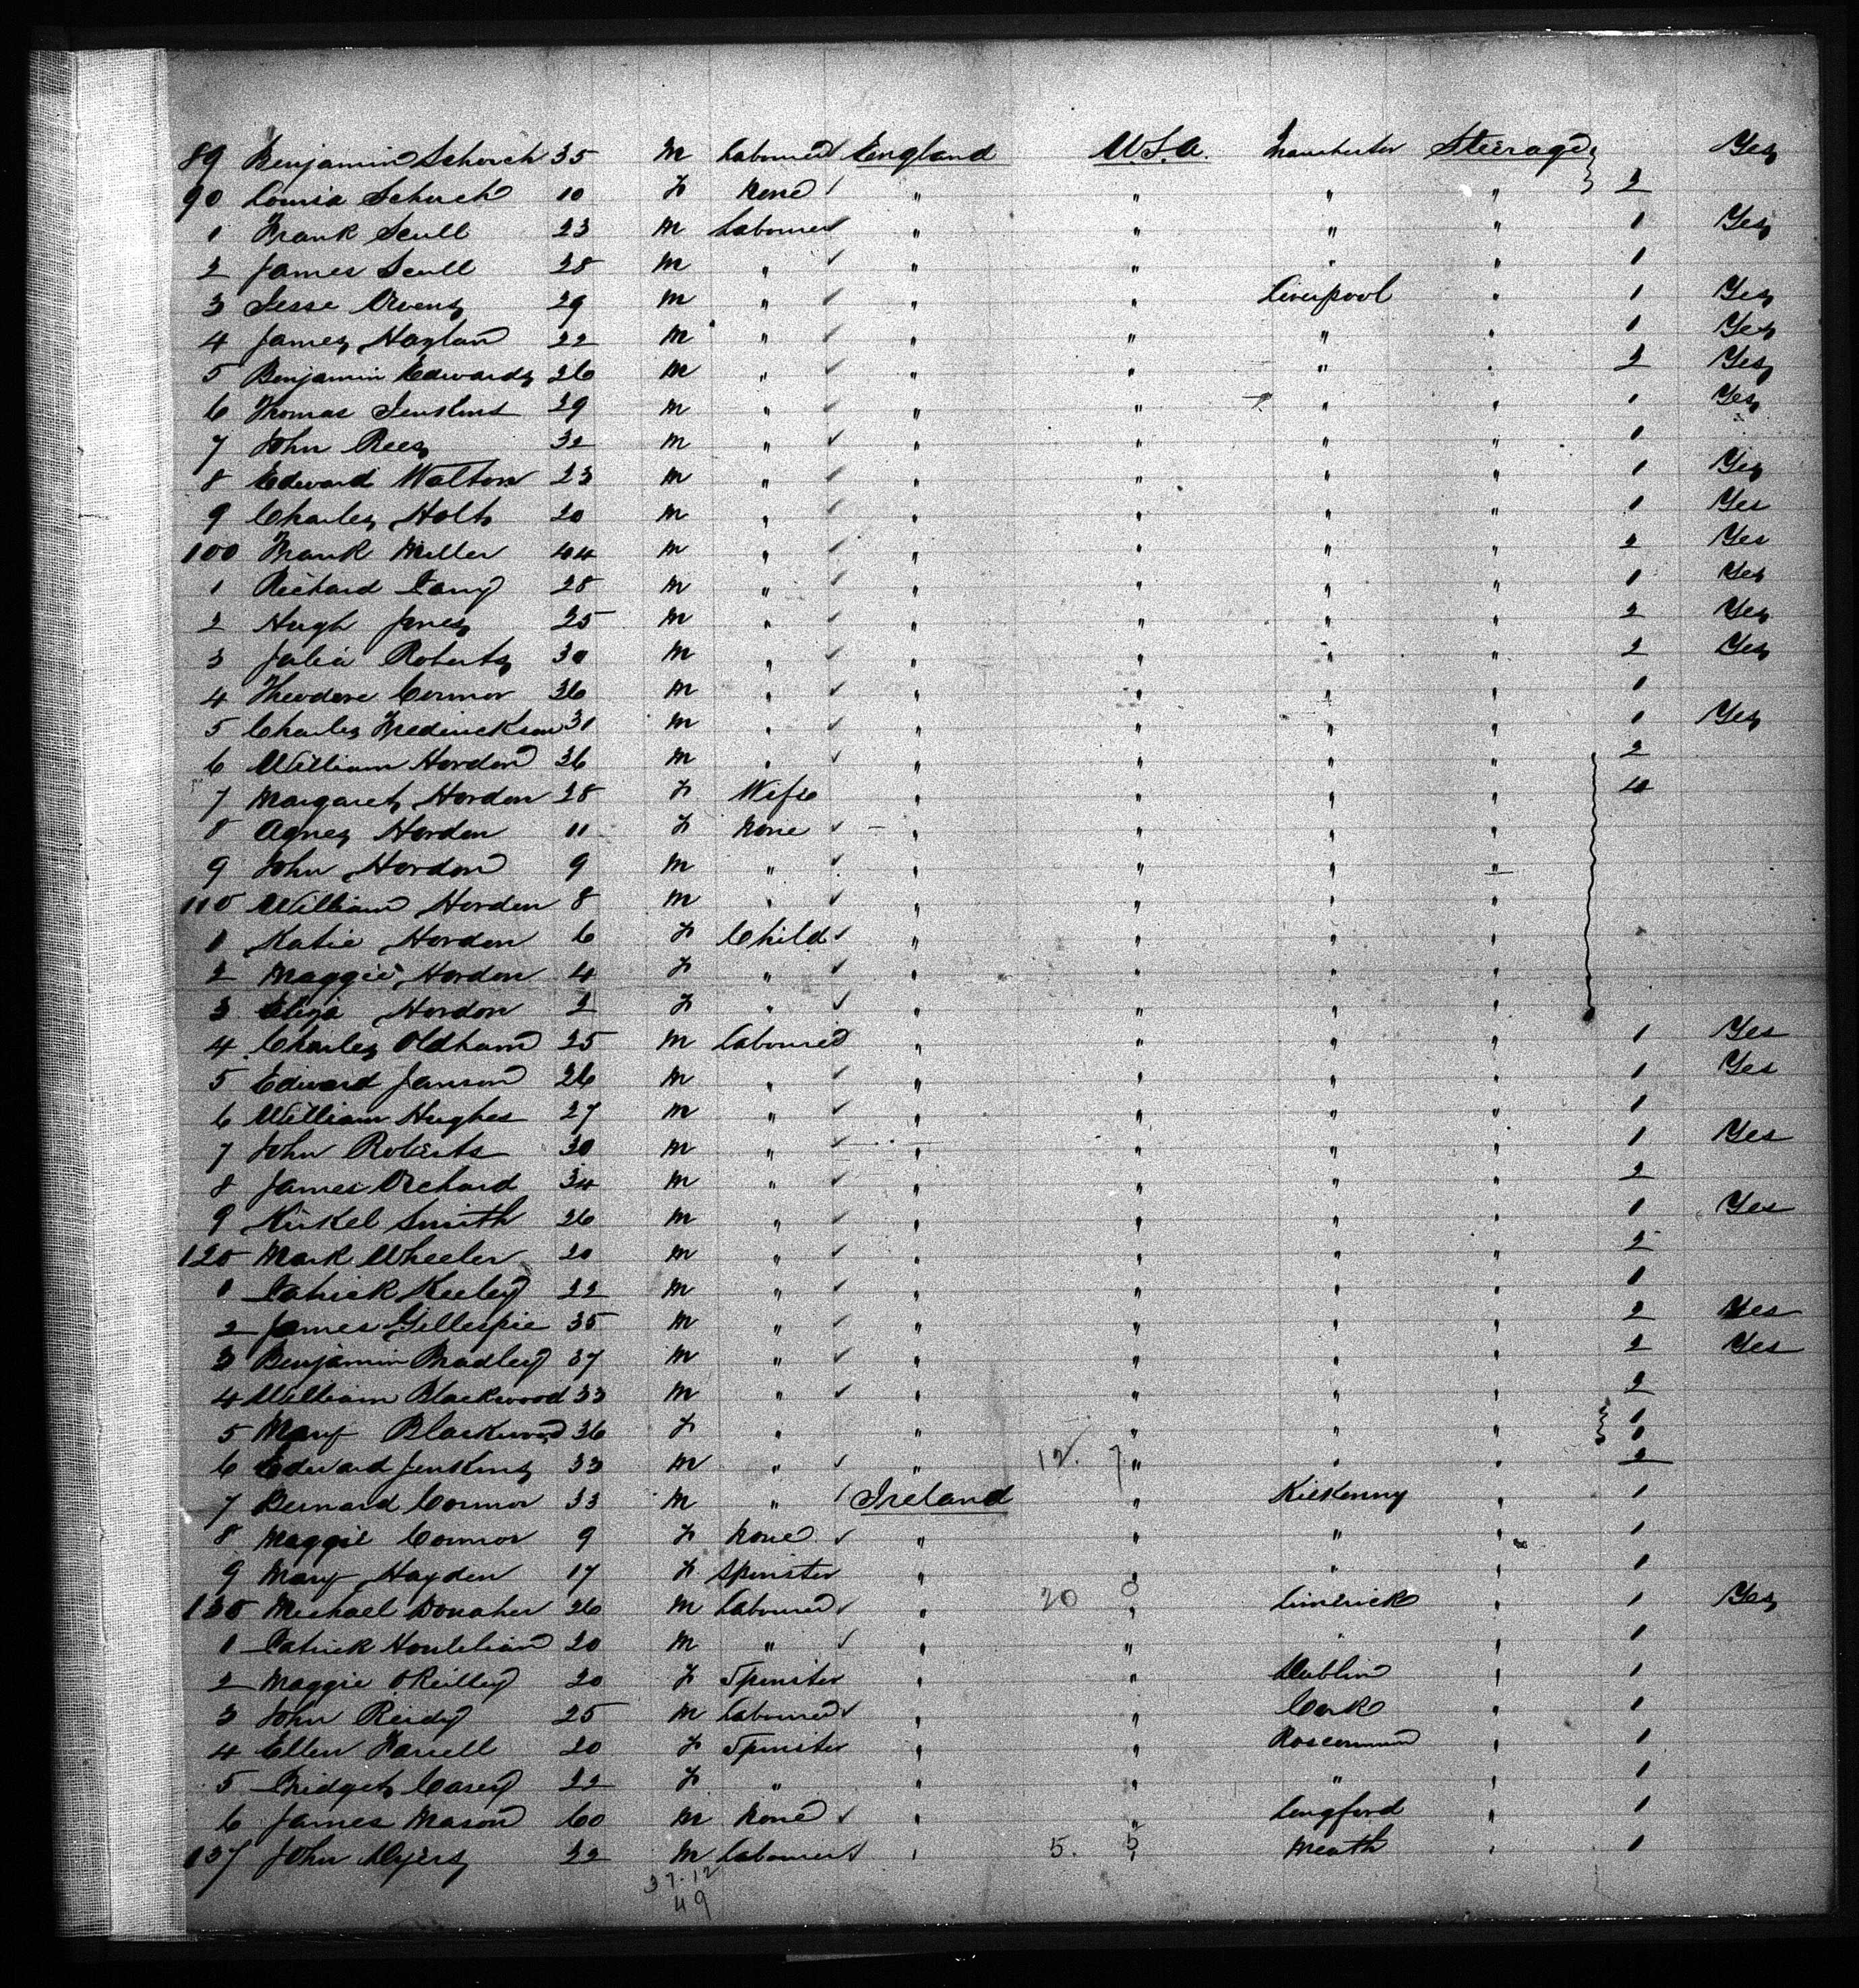 89 Benjamin Schorch 35 M Labourer England U.S.A. Manchester Steerage Yes
90 Louisa Schorch 10 F None " " " " 2
1 Frank Scull 23 M Labourer " " " " 1 Yes
2 James Scull 28 M " " " " " 1
3 Jesse Owens 29 M " " " Liverpool " 1 Yes
4 James 22 M " " " " " 1 Yes
5 Benjamin Edwards 26 M " " " " " 2 Yes
6 Thomas Jenkins 29 M " " " " " 1 Yes
7 John Rees 32 M " " " " " 1
8 Edward Walton 23 M " " " " " 1 Yes
9 Charles Holt 20 M " " " " " 1 Yes
100 Frank Miller 44 M " " " " " 2 Yes
1 Richard 28 M " " " " " 1 Yes
2 Hugh Jones 25 M " " " " " 2 Yes
3 Julia Roberts 30 M " " " " " 2 Yes
4 Theodore Connor 36 M " " " " " 1
5 Charles Frederickson 31 M " " " " " 1 Yes
6 William Hordon 36 M " " " " " 2
7 Margaret Hordon 28 F Wife " " " " 4
8 Agnes Hordon 11 F None " " " "
9 John Hordon 9 M " " " " "
110 William Hordon 8 M " " " " "
1 Katie Hordon 6 F Child " " " "
2 Maggie Hordon 4 F " " " " "
3 Eliza Hordon 2 F " " " " "
4 Charles Oldham 25 M Labourer " " " " 1 Yes
5 Edward Janson 26 M " " " " " 1 Yes
6 William Hughes 27 M " " " " " 1
7 John Roberts 30 M " " " " " 1 Yes
8 James Orchard 34 M " " " " " 2
9 Smith 26 M " " " " " 1 Yes
120 Mark Wheeler 20 M " " " " " 2
1 Patrick Keeley 22 M " " " " " 1
2 James Gillespie 35 M " " " " " 2 Yes
3 Benjamin Bradley 37 M " " " " " 2 Yes
4 William Blackwood 33 M " " " " " 2
5 Mary Blackwood 36 F " " " " " 1 1
6 Edward Jenkins 33 M " " 12. 7 " " " 2
7 Bernard Connor 33 M " Ireland " Kilkenny " 1
8 Maggie Connor 9 F None " " " " 1
9 Mary Hayden 17 F Spinster " " " " 1
130 Michael Donaher 26 M Labourer " 20 8 " Limerick " 1 Yes
1 Patrick Houlihan 20 M " " " " " 1
2 Maggie O'Reilley 20 F Spinster " " Dublin " 1
3 John Reidy 25 M Labourer " " Cork " 1
4 Ellen Farrell 20 F Spinster " " Roscommon " 1
5 Bridget Casey 22 F " " " " " 1
6 James Mason 60 M None " " Longford " 1
137 John Myers 22 M Labourer " 5. 5 " Meath " 1
37.12
49